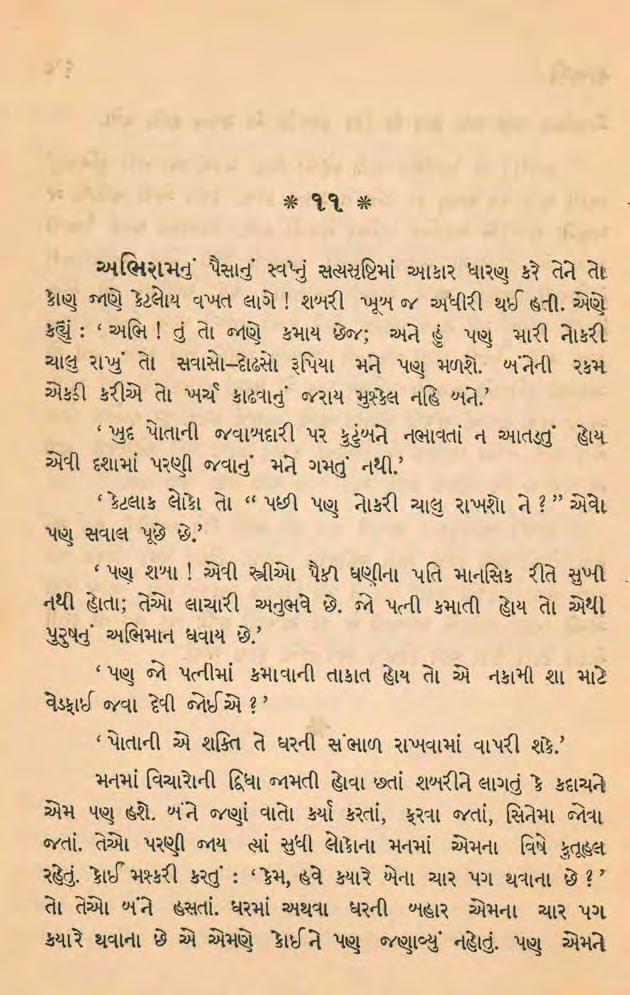 * ૧૧ *
અભિરામનું પૈસાનું સ્વપ્નું સત્યસૃષ્ટિમાં આકાર ધારણ કરે તેને તો
કોણ જાણે કેટલોય વખત લાગે ! શબરી ખૂબ જ અધીરી થઈ હતી. એણે
કહ્યું : ‘ અભિ ! તું તો જાણે કમાય છેજ; અને હું પણ મારી નોકરી
ચાલુ રાખું તો સવાસો–દોઢસો રૂપિયા મને પણ મળશે. બંનેની રકમ
એકઠી કરીએ તો ખર્ચ કાઢવાનું જરાય મુશ્કેલ નહિ બને.’
‘ ખુદ પોતાની જવાબદારી પર કુટુંબને નભાવતાં ન આતડતું હોય
એવી દશામાં પરણી જવાનું મને ગમતું નથી.’
‘ કેટલાક લોકો તો “ પછી પણ નોકરી ચાલુ રાખશો ને ? ” એવો
પણ સવાલ પૂછે છે.’
‘ પણ શબા ! એવી સ્ત્રીઓ પૈકી ઘણીના પતિ માનસિક રીતે સુખી
નથી હોતા; તેઓ લાચારી અનુભવે છે. જો પત્ની કમાતી હોય તો એથી
પુરુષનું અભિમાન ઘવાય છે.’
‘ પણ જો પત્નીમાં કમાવાની તાકાત હોય તો એ નકામી શા માટે
વેડફાઈ જવા દેવી જોઈએ ? ’
‘ પોતાની એ શક્તિ તે ઘરની સંભાળ રાખવામાં વાપરી શકે.’
મનમાં વિચારોની દ્વિધા જામતી હોવા છતાં શબરીને લાગતું કે કદાચને
એમ પણ હશે. બંને જણાં વાતો કર્યાં કરતાં, ફરવા જતાં, સિનેમા જોવા
જતાં. તેઓ પરણી જાય ત્યાં સુધી લોકોના મનમાં એમના વિષે કુતૂહલ
રહેતું. કોઈ મશ્કરી કરતું : ‘ કેમ, હવે ક્યારે બેના ચાર પગ થવાના છે ? ’
તો તેઓ બંને હસતાં. ઘરમાં અથવા ઘરની બહાર એમના ચાર પગ
ક્યારે થવાના છે એ એમણે કોઈને પણ જણાવ્યું નહોતું. પણ એમને